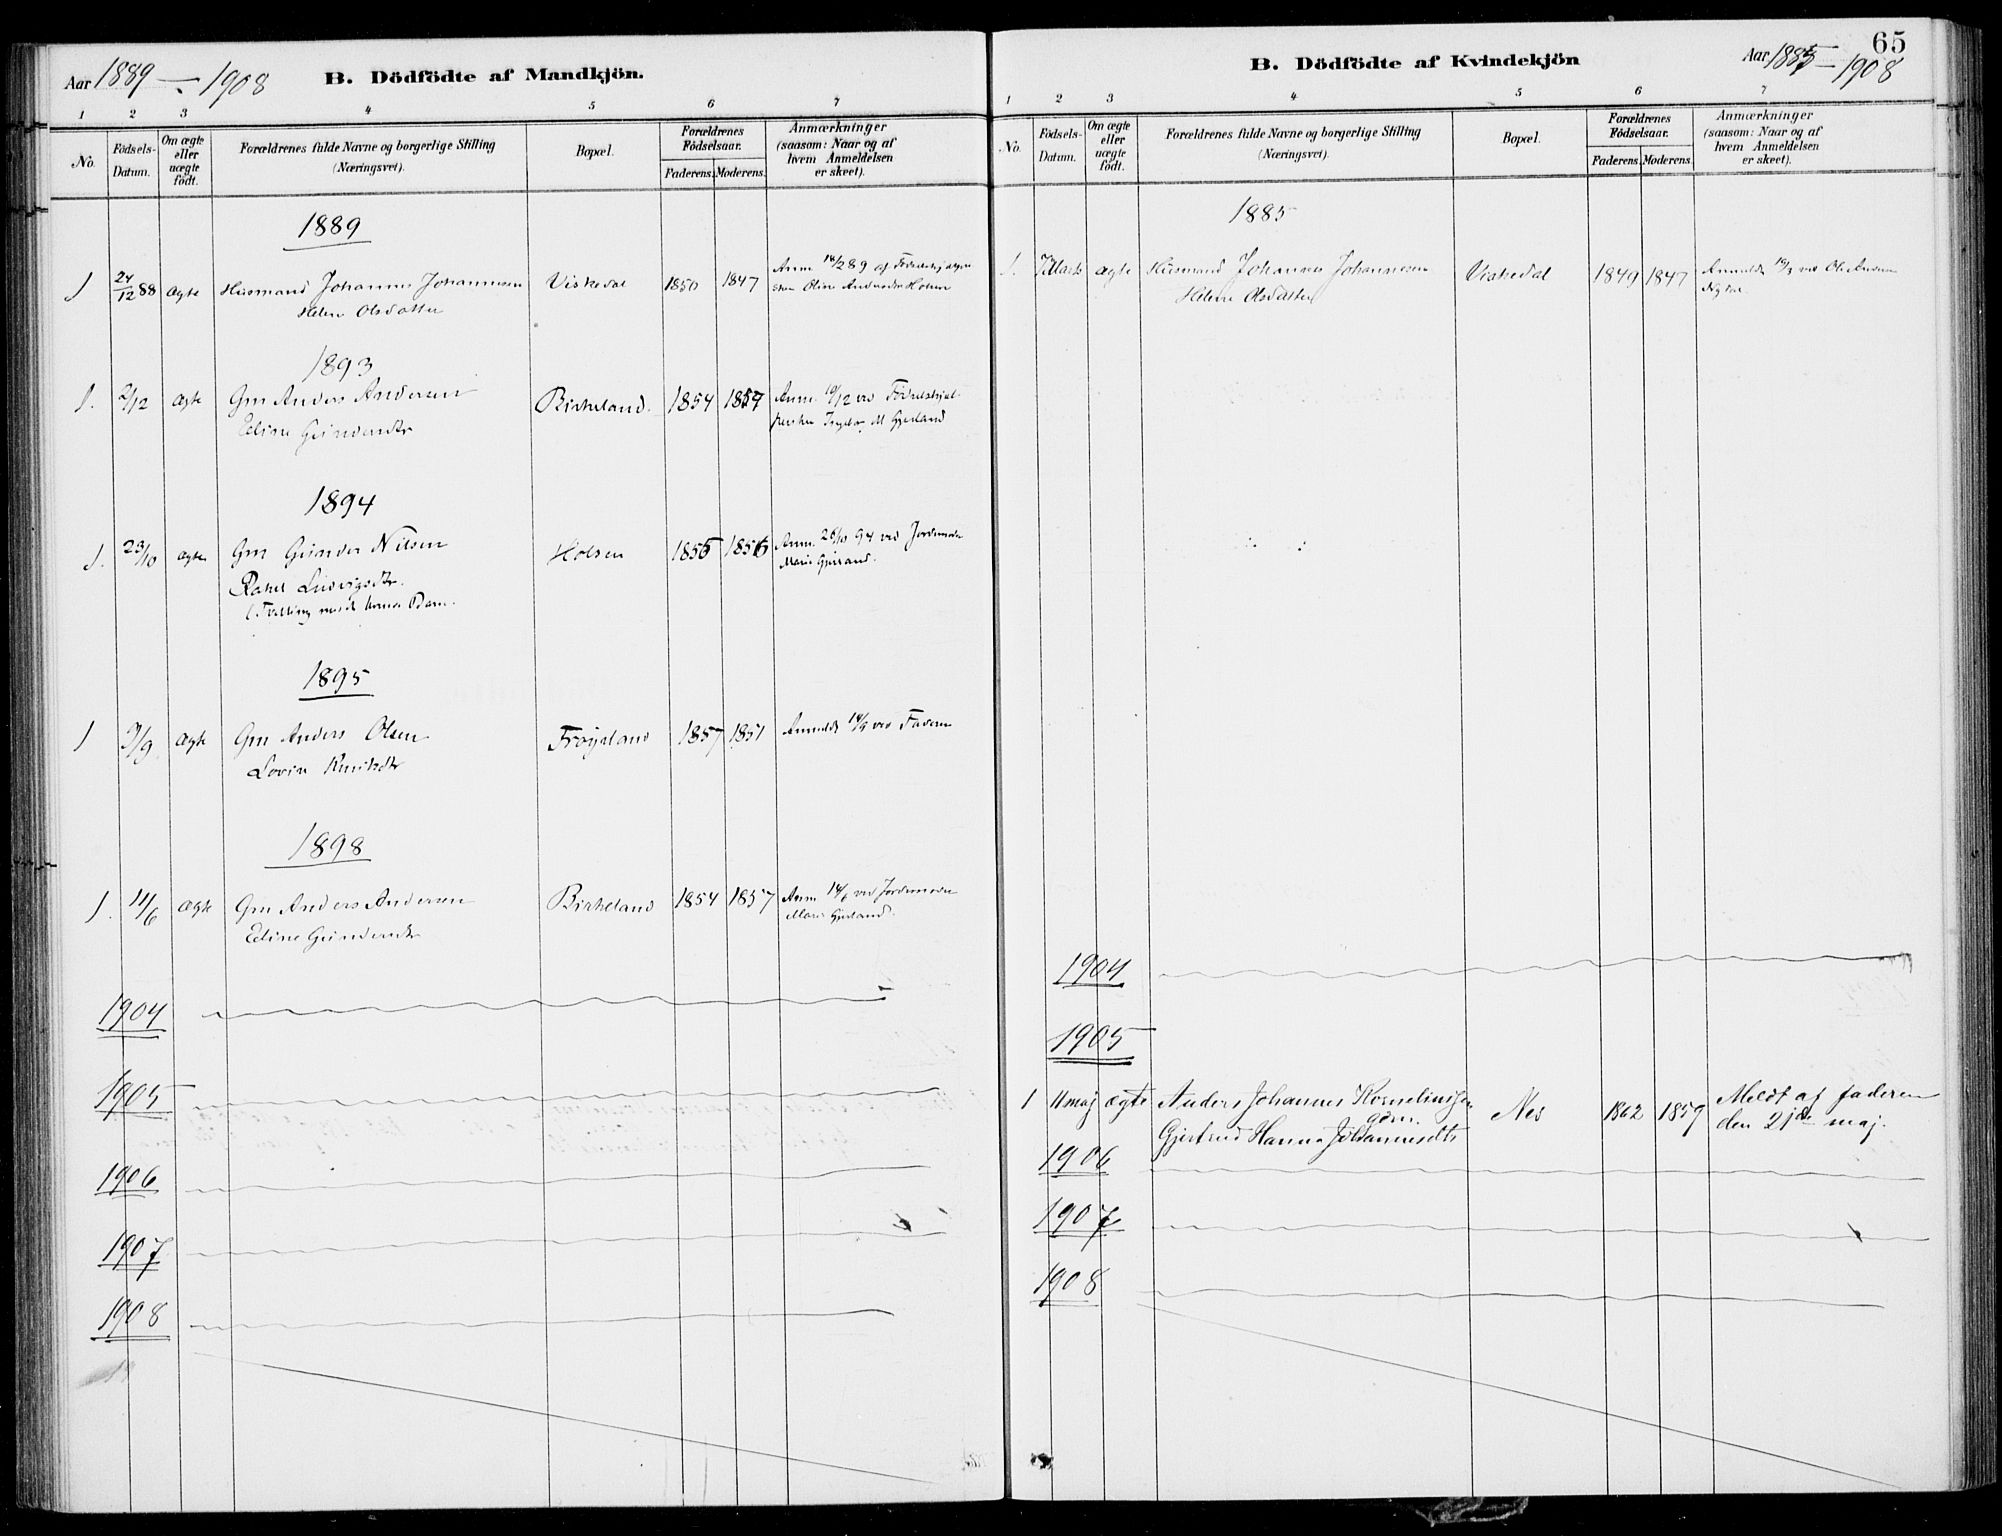 Aar 1889 - 1908
B. Dödfödte af Mandkjön.
1 2 3 4 5 6 7
No.
Födsels-
Datum.
Om ægte
eller
uægte
födt.
Forældrenes fulde Navne og borgerlige Stilling
(Næringsvei).
Bopæl.
Forældrenes
Födselsaar.
Faderens. Moderens.
Anmærkninger
(saasom: Naar og af
hvem Anmeldelsen
er skeet).
1889
1 24/12 88 ægte Husmand Johannes Johannesen Viskedal 1850 1847 Anm 14/2 89 af
Helene Olsdatter
1893
1. 2/12 ægte Gm Anders Andersen Birkeland. 1854 1857 Anm. 10/12 ved
Eline Gundersdtr Gjerland
1894
1. 23/10 ægte Gm Gunder Nilsen Holsen 1855 1856 Anm. 26/10 94 ved Jordemoder
Marie Gjerland.
Rakel Ludvigsdtr.
(Tvilling med levende Barn.
1895
1 9/9 ægte Gm Anders Olsen Fröysland 1857 1851 Anmeldt 14/9 ved Faderen
Lovise Knutsdtr
1898
1. 11/6 ægte Gm Anders Andersen Birkeland 1854 1857 Anm 14/6 ved Jordemoder
Eline Gundersdtr Marie Gjerland.
1904
1905
1906
1907
1908
19
65
Aar 1885 - 1908
B. Dödfödte af Kvindekjön
1 2 3 4 5 6 7
No.
Födsels-
Datum.
Om ægte
eller
uægte
födt.
Forældrenes fulde Navne og borgerlige Stilling
(Næringsvei).
Bopæl.
Forældrenes
Födselsaar.
Faderens. Moderens.
Anmærkninger
(saasom: Naar og af
hvem Anmeldelsen
er skeet).
1885
1. 7 Marts ægte Husmand Johannes Johannesen Viskedal 1849 1847 Anmeldt 19/3 ved Ole Andersen
Helene Olsdatter
1904
1905
1 11 maj ægte Anders Johannes Korneliussen Nes 1862 1859 Meldt af faderen
gdm.
Gjertrud Hanna Johannesdtr den 21de maj.
1906
1907
1908